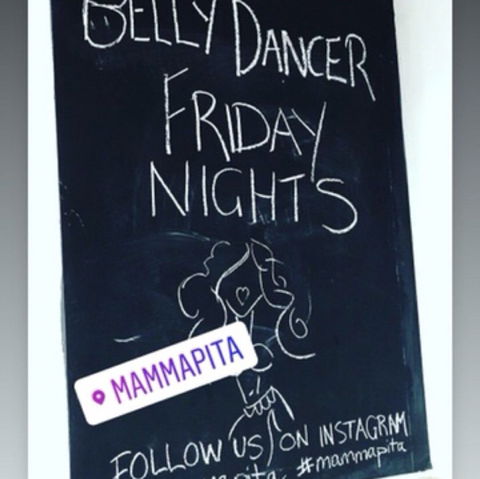 BELLY DANCER
FRIDAY
NIGHTS
MAMMAPITA
FOLLOW US ON INSTAGRAM
#mammapita